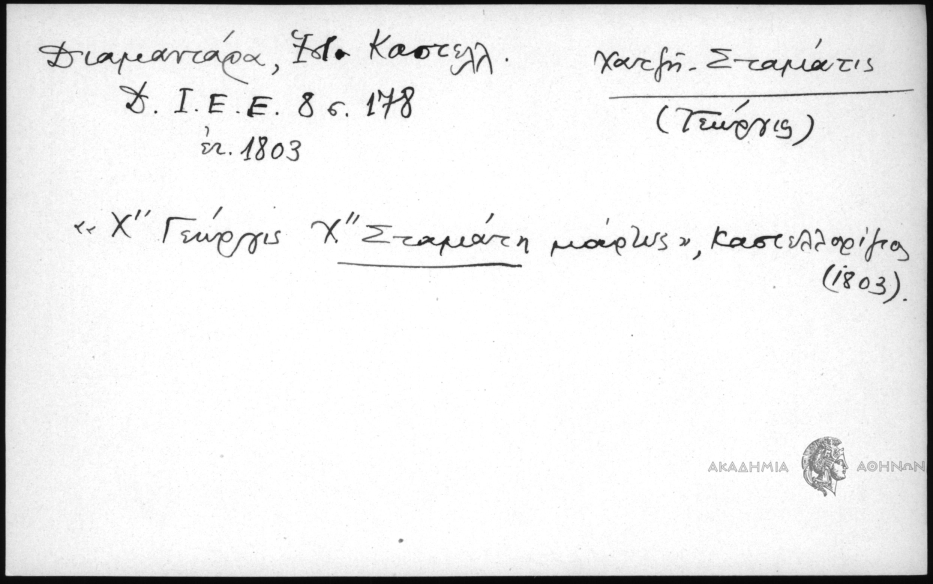 Διαμαντάρα, Ἱστ. Καστελλ.
Δ. Ι. Ε. Ε. 8 σ. 178
ἐτ. 1803
Χατζῆ-Σταμάτις
(Γεώργις)
«Χ" Γεώργις Χ" Σταμάτη μάρτυς», Καστελλορίζο
(1803).
ΑΚΑΔΗΜΙΑ ΑΘΗΝΩΝ